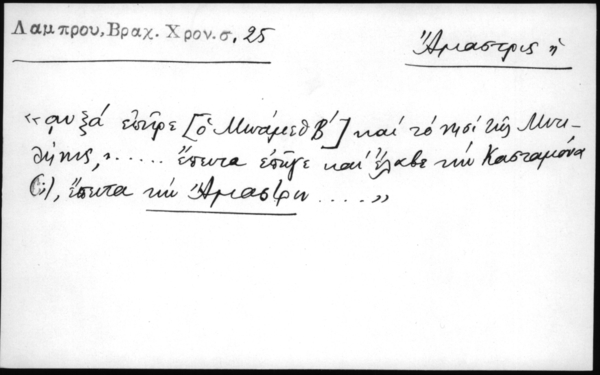 Λαμπρου, Βραχ. Χρον. σ. 25
Ἄμαστρις ἡ
«͵αυξα ἐπῆρε [ὁ Μωάμεθ Β΄] καὶ τὸ νησὶ τῆς Μυτι-
λήνης, » ..... ἔπειτα ἐπῆγε καὶ ἔλαβε τὴν Κασταμόνα
(ῦ), ἔπειτα τὴν Ἄμαστριν ..... »